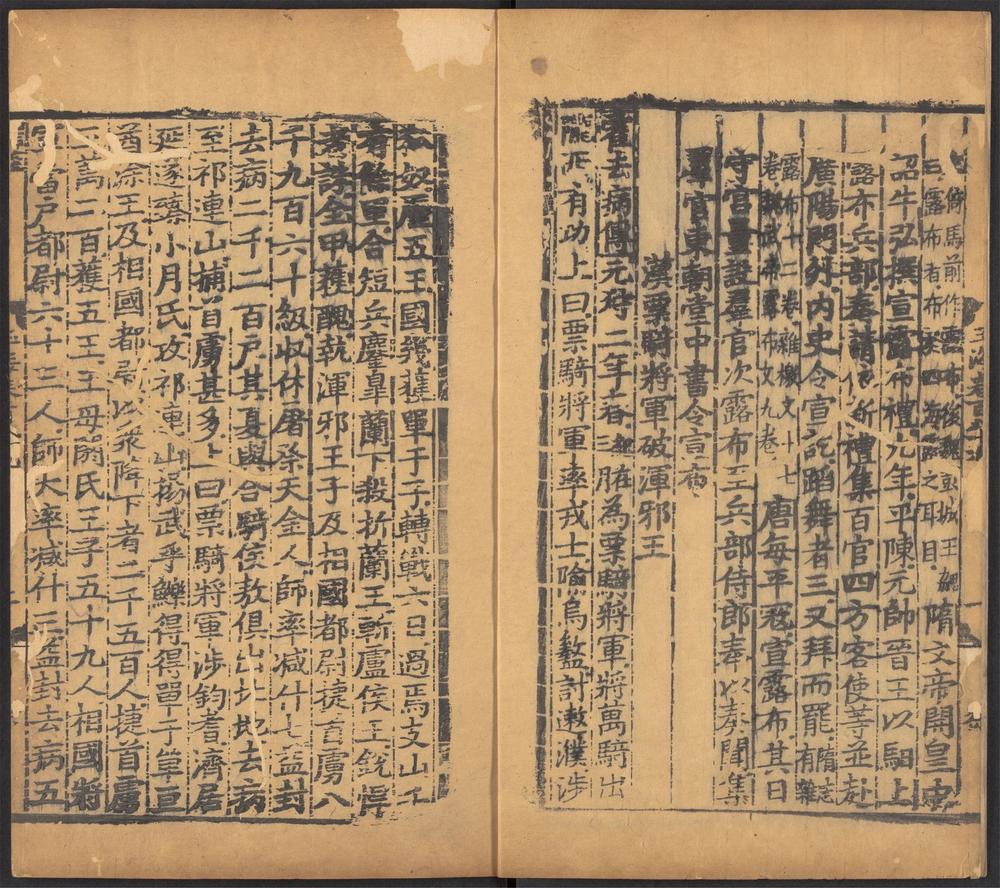 倚馬前作露布後魏彭城王勰
曰露布有布於四海露之耳目隋文帝開皇中
詔牛弘撰宣露布禮九年平陳元帥晉王以駟上
露布兵部奏請依新禮集百官四方客使等並赴
廣陽門外內史令宣訖蹈舞者三又拜而罷隋志有雜
露布十二卷雜檄文十七
卷魏武帝露布文九卷唐每平寇宣露布其日
守官量設羣官次露布至兵部侍郎奉以奏聞集
羣官東朝堂中書令宣布
漢票騎將軍破渾邪王
霍去病傳元狩二年春三月為票騎將軍將萬騎出
隴西有功上曰票騎將軍率戎士隃烏盭討遬濮涉
狐奴歷五王國幾獲單于子轉戰六日過焉支山千
有餘里合短兵鏖皋蘭下殺折蘭王斬盧侯王銳悍
者誅全甲獲醜執渾邪王子及相國都尉捷首虜八
千九百六十級收休屠祭天金人師率減什七益封
去病二千二百戶其夏與合騎侯敖俱出北地去病
至祁連山捕首虜甚多上曰票騎將軍涉鈞耆濟居
延遂臻小月氏攻祁連山揚武乎鱳得得單于單亘
酋涂王及相國都尉以眾降下者二千五百人捷首虜
三萬二百獲五王王母閼氏王子五十九人相國將
軍當戶都尉六十三人師大率減什三益封去病五